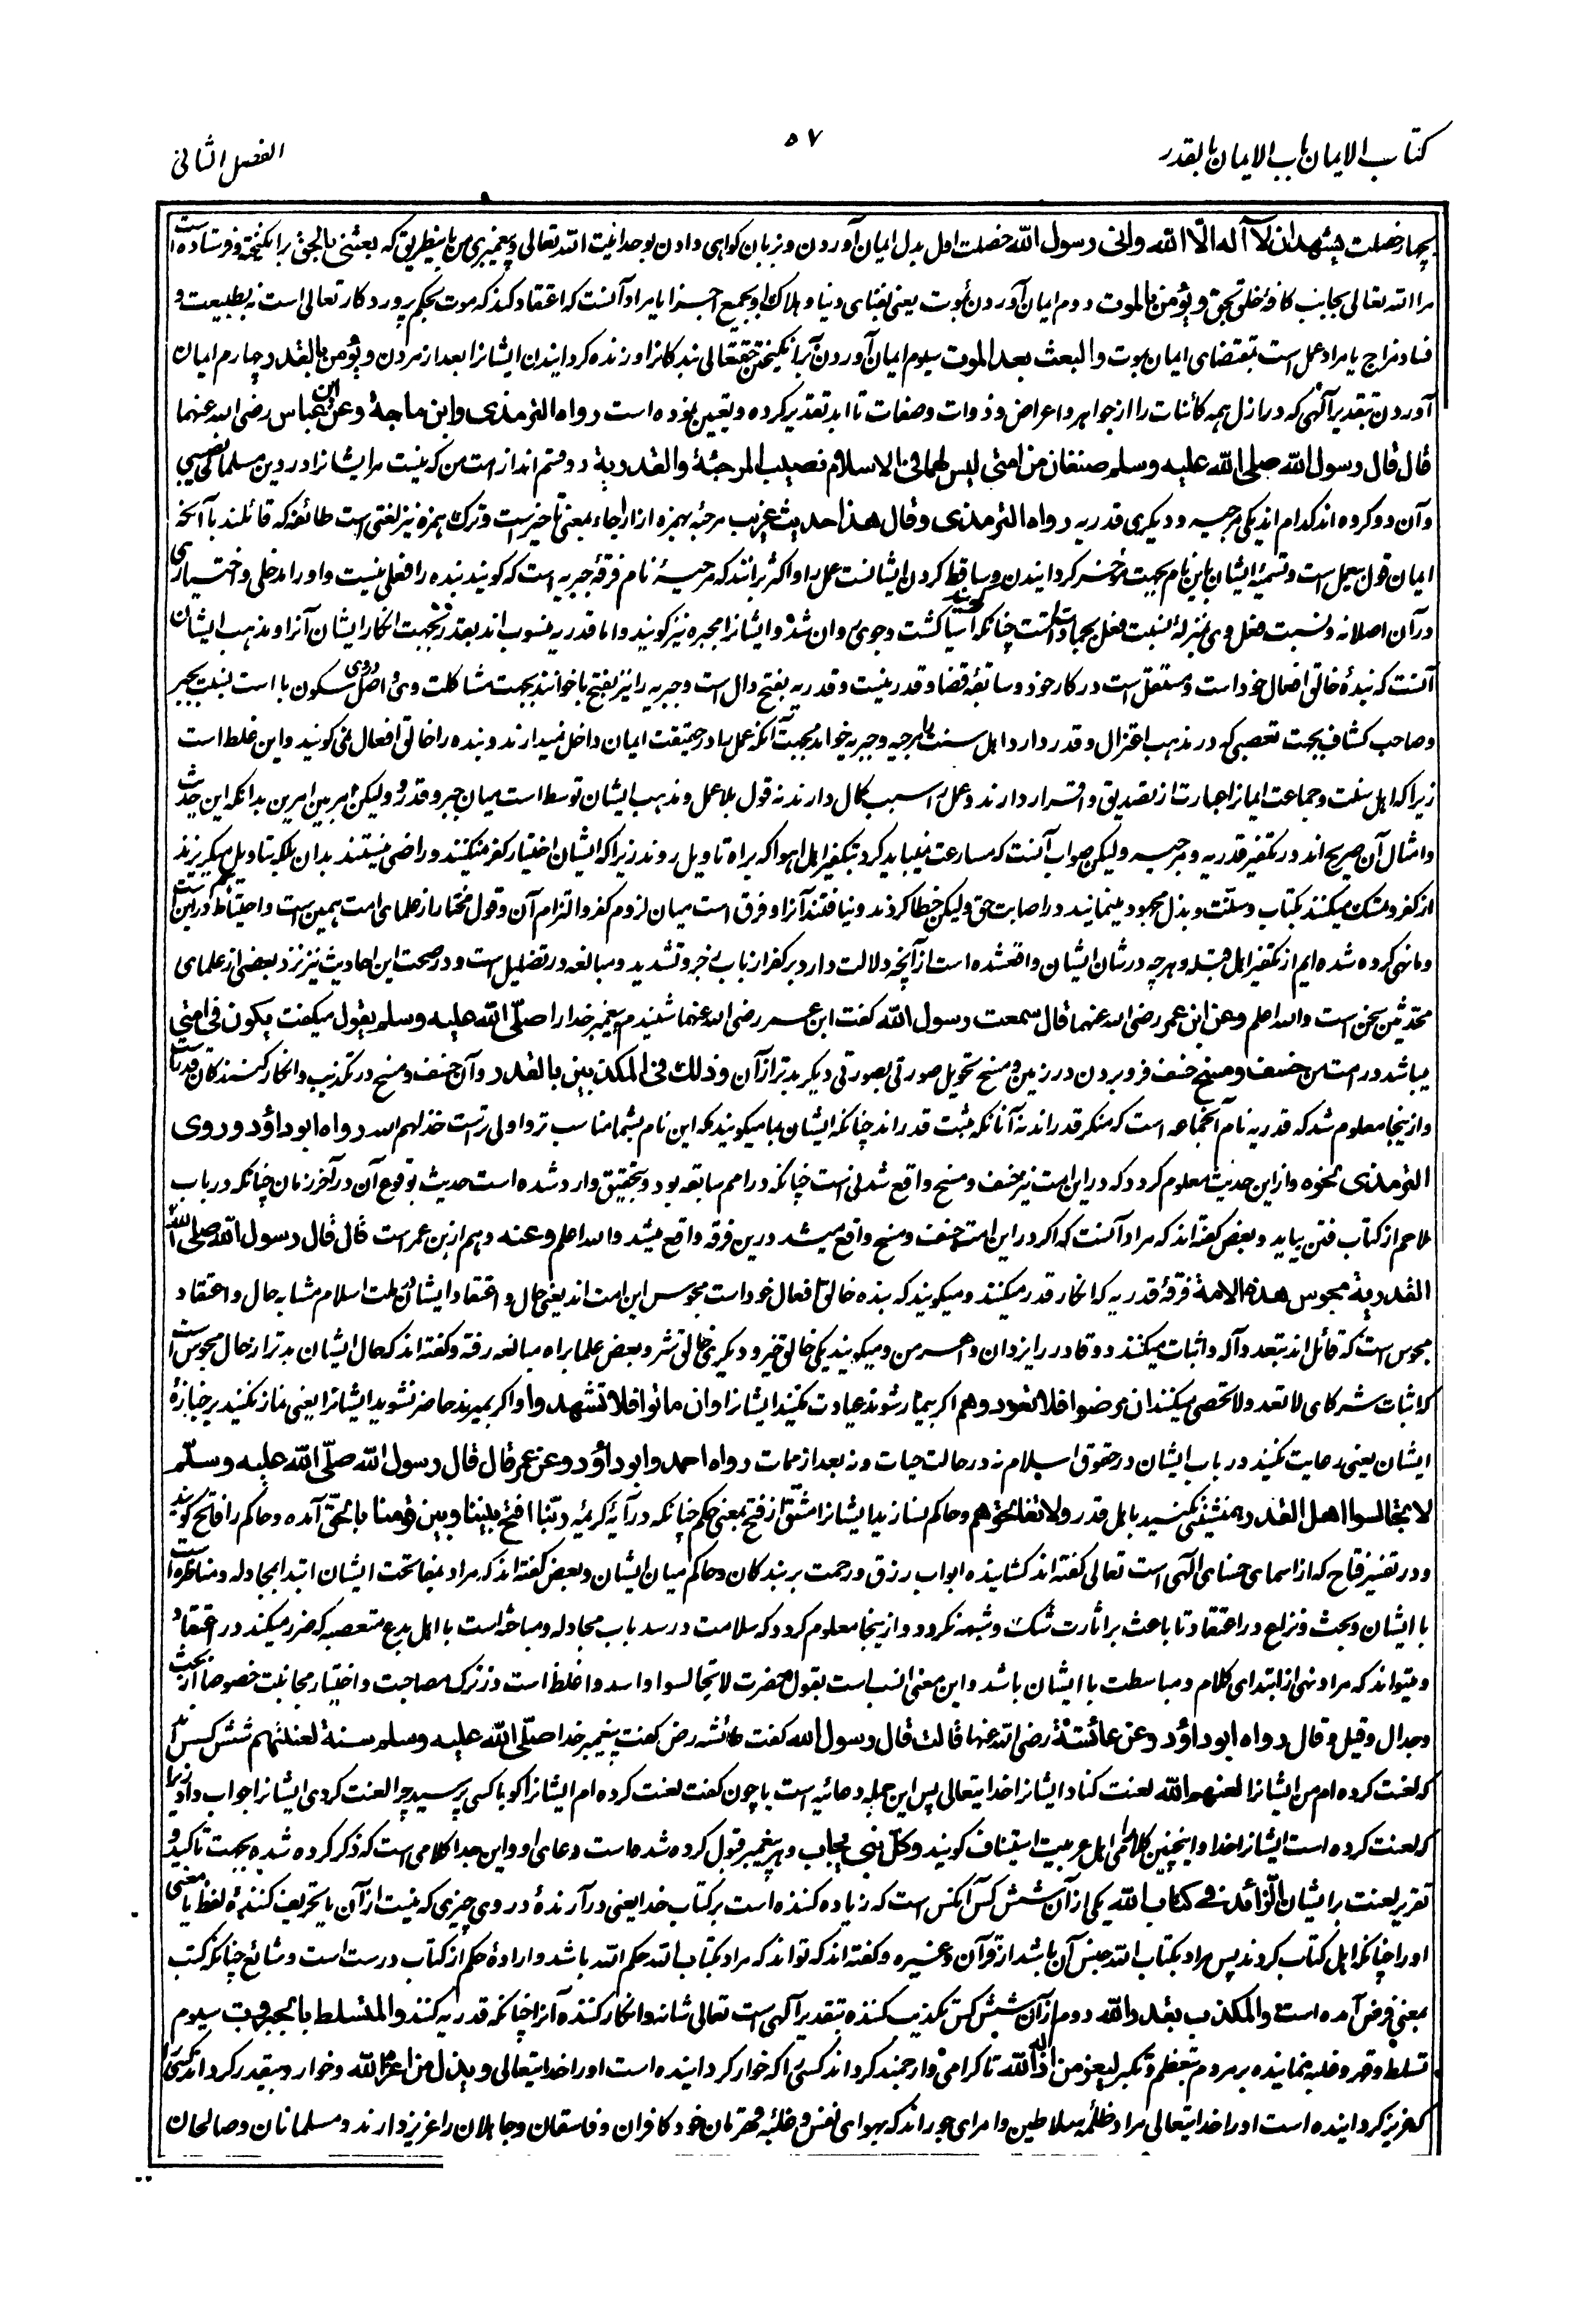 کتاب الایمان باب الایمان بالقدر
۵۷
الفصل الثانی
بچهار خصلت یشهد ان لا آله الّا الله وانی رسول الله خصلت اول بدل ایمان آوردن و بزبان گواهی دادن بوحدانیت الله تعالی و پیغمبری من باینطریق که بعثنی بالحق برانگیخته و فرستاده است
مرا الله تعالی بجانب کافهٔ خلق بحق و یؤمن بالموت دوم ایمان آوردن بموت یعنی بفنای دنیا و هلاک او بجمیع اجزا یا مراد آنست که اعتقاد کند که موت بحکم پروردگار تعالی است نه بطبیعت و
فساد مزاج یا مراد عمل است بمقتضای ایمان بموت والبعث بعد الموت سیوم ایمان آوردن برانگیختن حقتعالی بندگانرا و زنده گردانیدن ایشانرا بعد از مردن و یؤمن بالقدر چهارم ایمان
آوردن بتقدیر آلهی که در ازل همه کائنات را از جواهر و اعراض و ذوات و صفات تا ابد تقدیر کرده و تعیین نموده است رواه الترمذی وابن ماجة وعن ابن عباس رضی الله عنهما
قال قال رسول الله صلی الله علیه وسلم صنفان من امتی لیس لهما فی الاسلام نصیب المرجئة والقدریة دو قسم اند از امت من که نیست مر ایشانرا در دین مسلمانی نصیبی
و آن دو گروه اند کدام اند یکی مرجیه و دیگری قدریه رواه الترمذی وقال هذا حدیث غریب مرجئه بهمزه از ارجاء بمعنی تاخیر است و ترک همزه نیز لغتی است طائفه که قائلند بآنکه
ایمان قول بیعمل است و تسمیهٔ ایشان باین نام بجهت مؤخر گردانیدن و ساقط کردن ایشانست عمل را و اکثر برانند که مرجیه نام فرقهٔ جبریه است که گویند بنده را فعلی نیست و او را مدخلی و اختیاری
در آن اصلا نه و نسبت فعل بوی بمنزلهٔ نسبت فعل بجمادات است چنانکه گویند آسیا گشت و جوی روان شد و ایشانرا مجبره نیز گویند و اما قدریه منسوب اند بقدر بجهت انکار ایشان آنرا و مذهب ایشان
آنست که بندهٔ خالق افعال خود است و مستقل است در کار خود و سابقهٔ قضا و قدر نیست و قدریه بفتح دال است و جبریه را نیز بفتح با خوانند بجهت مشاکلت وی و اصل در وی سکون با است نسبت بجبر
و صاحب کشاف بجهت تعصبی که در مذهب اعتزال و قدر دارد اهل سنت را مرجیه و جبریه خواند بجهت آنکه عمل را در حقیقت ایمان داخل نمیدارند و بنده را خالق افعال نمی گویند و این غلط است
زیرا که اهل سنت و جماعت ایمانرا عبارت از تصدیق و اقرار دارند و عمل را سبب کمال دارند نه قول بلا عمل و مذهب ایشان توسط است میان جبر و قدر و لیکن امر بین امرین بدانکه این حدیث
و امثال آن صریح اند در تکفیر قدریه و مرجیه و لیکن صواب آنست که مسارعت نباید کرد بتکفیر اهل اهوا که براه تاویل روند زیرا که ایشان اختیار کفر نمیکنند و راضی نیستند بدان بلکه بتاویل میگریزند
از کفر و تمسک میکنند بکتاب و سنت و بذل مجهود مینمایند در اصابت حق و لیکن خطا کردند و نیافتند آنرا و فرق است میان لزوم کفر و التزام آن و قول مختار از علمای امت همین است و احتیاط در این است
و ما نهی کرده شده ایم از تکفیر اهل قبله و هرچه در شان ایشان واقعشده است از آنچه دلالت دارد بر کفر از باب زجر و تشدید و مبالغه در تضلیل است و در صحت این احادیث نیز نزد بعضی از علمای
محدثین سخن است والله اعلم وعن ابن عمر رضی الله عنهما قال سمعت رسول الله گفت ابن عمر رضی الله عنهما شنیدم پیغمبر خدا را صلّی الله علیه وسلم یقول میگفت یکون فی امتی
میباشد در امت من خسف ومسخ خسف فرو بردن در زمین و مسخ تحویل صورتی بصورتی دیگر بدتر از آن وذلك فی المکذبین بالقدر و آن خسف و مسخ در تکذیب و انکار کنندگان قدر است
و از ینجا معلوم شد که قدریه نام آنجماعه است که منکر قدر اند نه آنانکه مثبت قدر اند چنانکه ایشان بما میگویند که این نام بشما مناسب تر و اولی تر است خذلهم الله رواه ابو داؤد و روی
الترمذی نحوه و از این حدیث معلوم گردد که در این امت نیز خسف و مسخ واقع شدنی است چنانکه در امم سابقه بود و بتحقیق وارد شده است حدیث بوقوع آن در آخر زمان چنانکه در باب
ملاحم از کتاب فتن بیاید و بعض گفته اند که مراد آنست که اگر در این امت خسف و مسخ واقع میشد درین فرقه واقع میشد والله اعلم وعنه و هم از ابن عمر است قال قال رسول الله صلی الله
القدریة مجوس هذه الامة فرقهٔ قدریه که انکار قدر میکنند و میگویند که بنده خالق افعال خود است مجوس این امت اند یعنی حال و اعتقاد ایشان در ملت اسلام مشابه حال و اعتقاد
مجوس است که قائل اند بتعدد آله و اثبات میکنند دو قادر را یزدان و اهرمن و میگویند یکی خالق خیر و دیگری خالق شر و بعض علما براه مبالغه رفته و گفته اند که حال ایشان بدتر از حال مجوس است
که اثبات شرکای لا تعد ولا تحصی میکنند ان مرضوا فلا تعودوهم اگر بیمار شوند عیادت نکنید ایشانرا وان ماتوا فلا تشهدوا و اگر بمیرند حاضر نشوید ایشانرا یعنی نماز نکنید بر جنازهٔ
ایشان یعنی رعایت نکنید در باب ایشان در حقوق اسلام نه در حالت حیات و نه بعد از ممات رواه احمد وابو داؤد وعن عمر قال قال رسول الله صلّی الله علیه وسلّم
لا تجالسوا اهل القدر همنشینی نکنید باهل قدر ولا تفاتحوهم و حاکم نسازید ایشانرا مشتق از فتح بمعنی حکم چنانکه در آیهٔ کریمه ربّنا افتح بیننا وبین قومنا بالحقّ آمده و حاکم را فاتح گویند
و در تفسیر فتاح که از اسمای حسنای آلهی است تعالی گفته اند کشاینده ابواب رزق و رحمت بر بندگان و حاکم میان ایشان و بعض گفته اند که مراد بمفاتحت ایشان ابتدا بمجادله و مناظره است
با ایشان و بحث و نزاع در اعتقاد تا باعث بر اثارت شک و شبهه نگردد و از ینجا معلوم گردد که سلامت در سد باب مجادله و مباحثه است با اهل بدع متعصبه که ضرر میکند در اعتقاد
و میتواند که مراد نهی از ابتدای کلام و مباسطت با ایشان باشد و این معنی انسب است بقول آنحضرت لا تجالسوا و اسد و اغلظ است در ترک مصاحبت و اختیار مجانبت خصوصا از بحث
و جدال و قیل و قال رواه ابو داؤد وعن عائشة رضی الله عنها قالت قال رسول الله گفت عائشه رض گفت پیغمبر خدا صلّی الله علیه وسلم ستة لعنتهم شش کس اند
که لعنت کرده ام من ایشانرا لعنهم الله لعنت کناد ایشانرا خدایتعالی پس این جمله دعائیه است یا چون گفت لعنت کرده ام ایشانرا گویا کسی پرسید چرا لعنت کردی ایشانرا جواب داد زیرا
که لعنت کرده است ایشانرا خدا و اینچنین کلام را اهل عربیت استیناف گویند وکلّ نبی یجاب و هر پیغمبر قبول کرده شده است دعای او و این جدا کلامی است که ذکر کرده شده بجهت تاکید و
تقریر لعنت بر ایشان الزائد فی کتاب الله یکی از آن شش کس آنکس است که زیاده کننده است بر کتاب خدا یعنی در آرندهٔ در وی چیزی که نیست از آن یا تحریف کنندهٔ لفظ یا معنی
او را چنانکه اهل کتاب کردند پس مراد بکتاب الله جنس آن باشد از قرآن و غیره و گفته اند که تواند که مراد بکتاب الله حکم الله باشد و ارادهٔ حکم از کتاب درست است و شائع چنانکه کتب
بمعنی فرض آمده است والمکذب بقدر الله دوم از آن شش کس تکذیب کننده بتقدیر آلهی است تعالی شانه و انکار کننده آنرا چنانکه قدریه کنند والمتسلط بالجبروت سیوم
تسلط و قهر و غلبه نماینده بر مردم بتعظم و تکبر لیعز من اذلّه الله تا گرامی و ارجمند گرداند کسی را که خوار گردانیده است او را خدایتعالی ویذل من اعزّه الله و خوار و بیقدر گرداند کسی را
که عزیز گردانیده است او را خدایتعالی مراد ظلمهٔ سلاطین و امرای جور اند که بهوای نفس و غلبه و قهرمان خود کافران و فاسقان و جاهلان را عزیز دارند و مسلمانان و صالحان